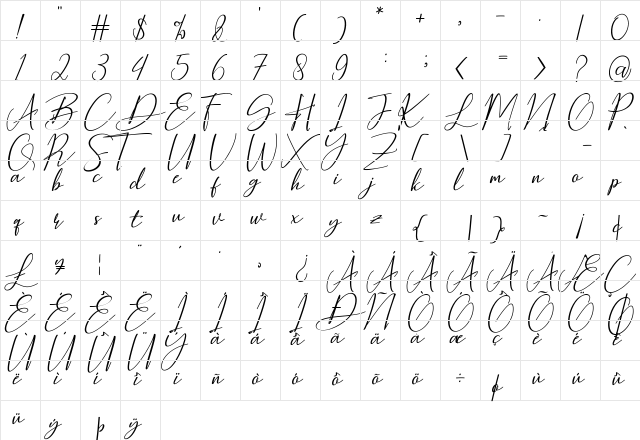 ! " # $ % & ' ( ) * + , - . / 0
1 2 3 4 5 6 7 8 9 : ; < = > ? @
A B C D E F G H I J K L M N O P
Q R S T U V W X Y Z [ \ ] -
a b c d e f g h i j k l m n o p
q r s t u v w x y z { | } ~ ¡ ¢
£ ¥ ¦ ¨ ¸ ¿ À Á Â Ã Ä Å Æ Ç
È É Ê Ë Ì Í Î Ï Ð Ñ Ò Ó Ô Õ Ö Ø
Ù Ú Û Ü Ý à á â ã ä å æ ç è é ê
ë ì í î ï ñ ò ó ô õ ö ÷ ø ù ú û
ü ý þ ÿ